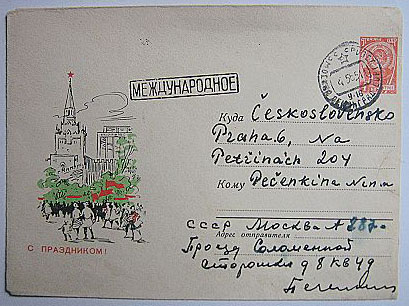 МЕЖДУНАРОДНОЕ
Куда Československo
Praha 6, Na
Petřinách 204
Кому Pečenkina Nina
СССР Москва А
Адрес отправителя
Проезд Соломенной
Сторожки д 8 кв 49
С ПРАЗДНИКОМ!